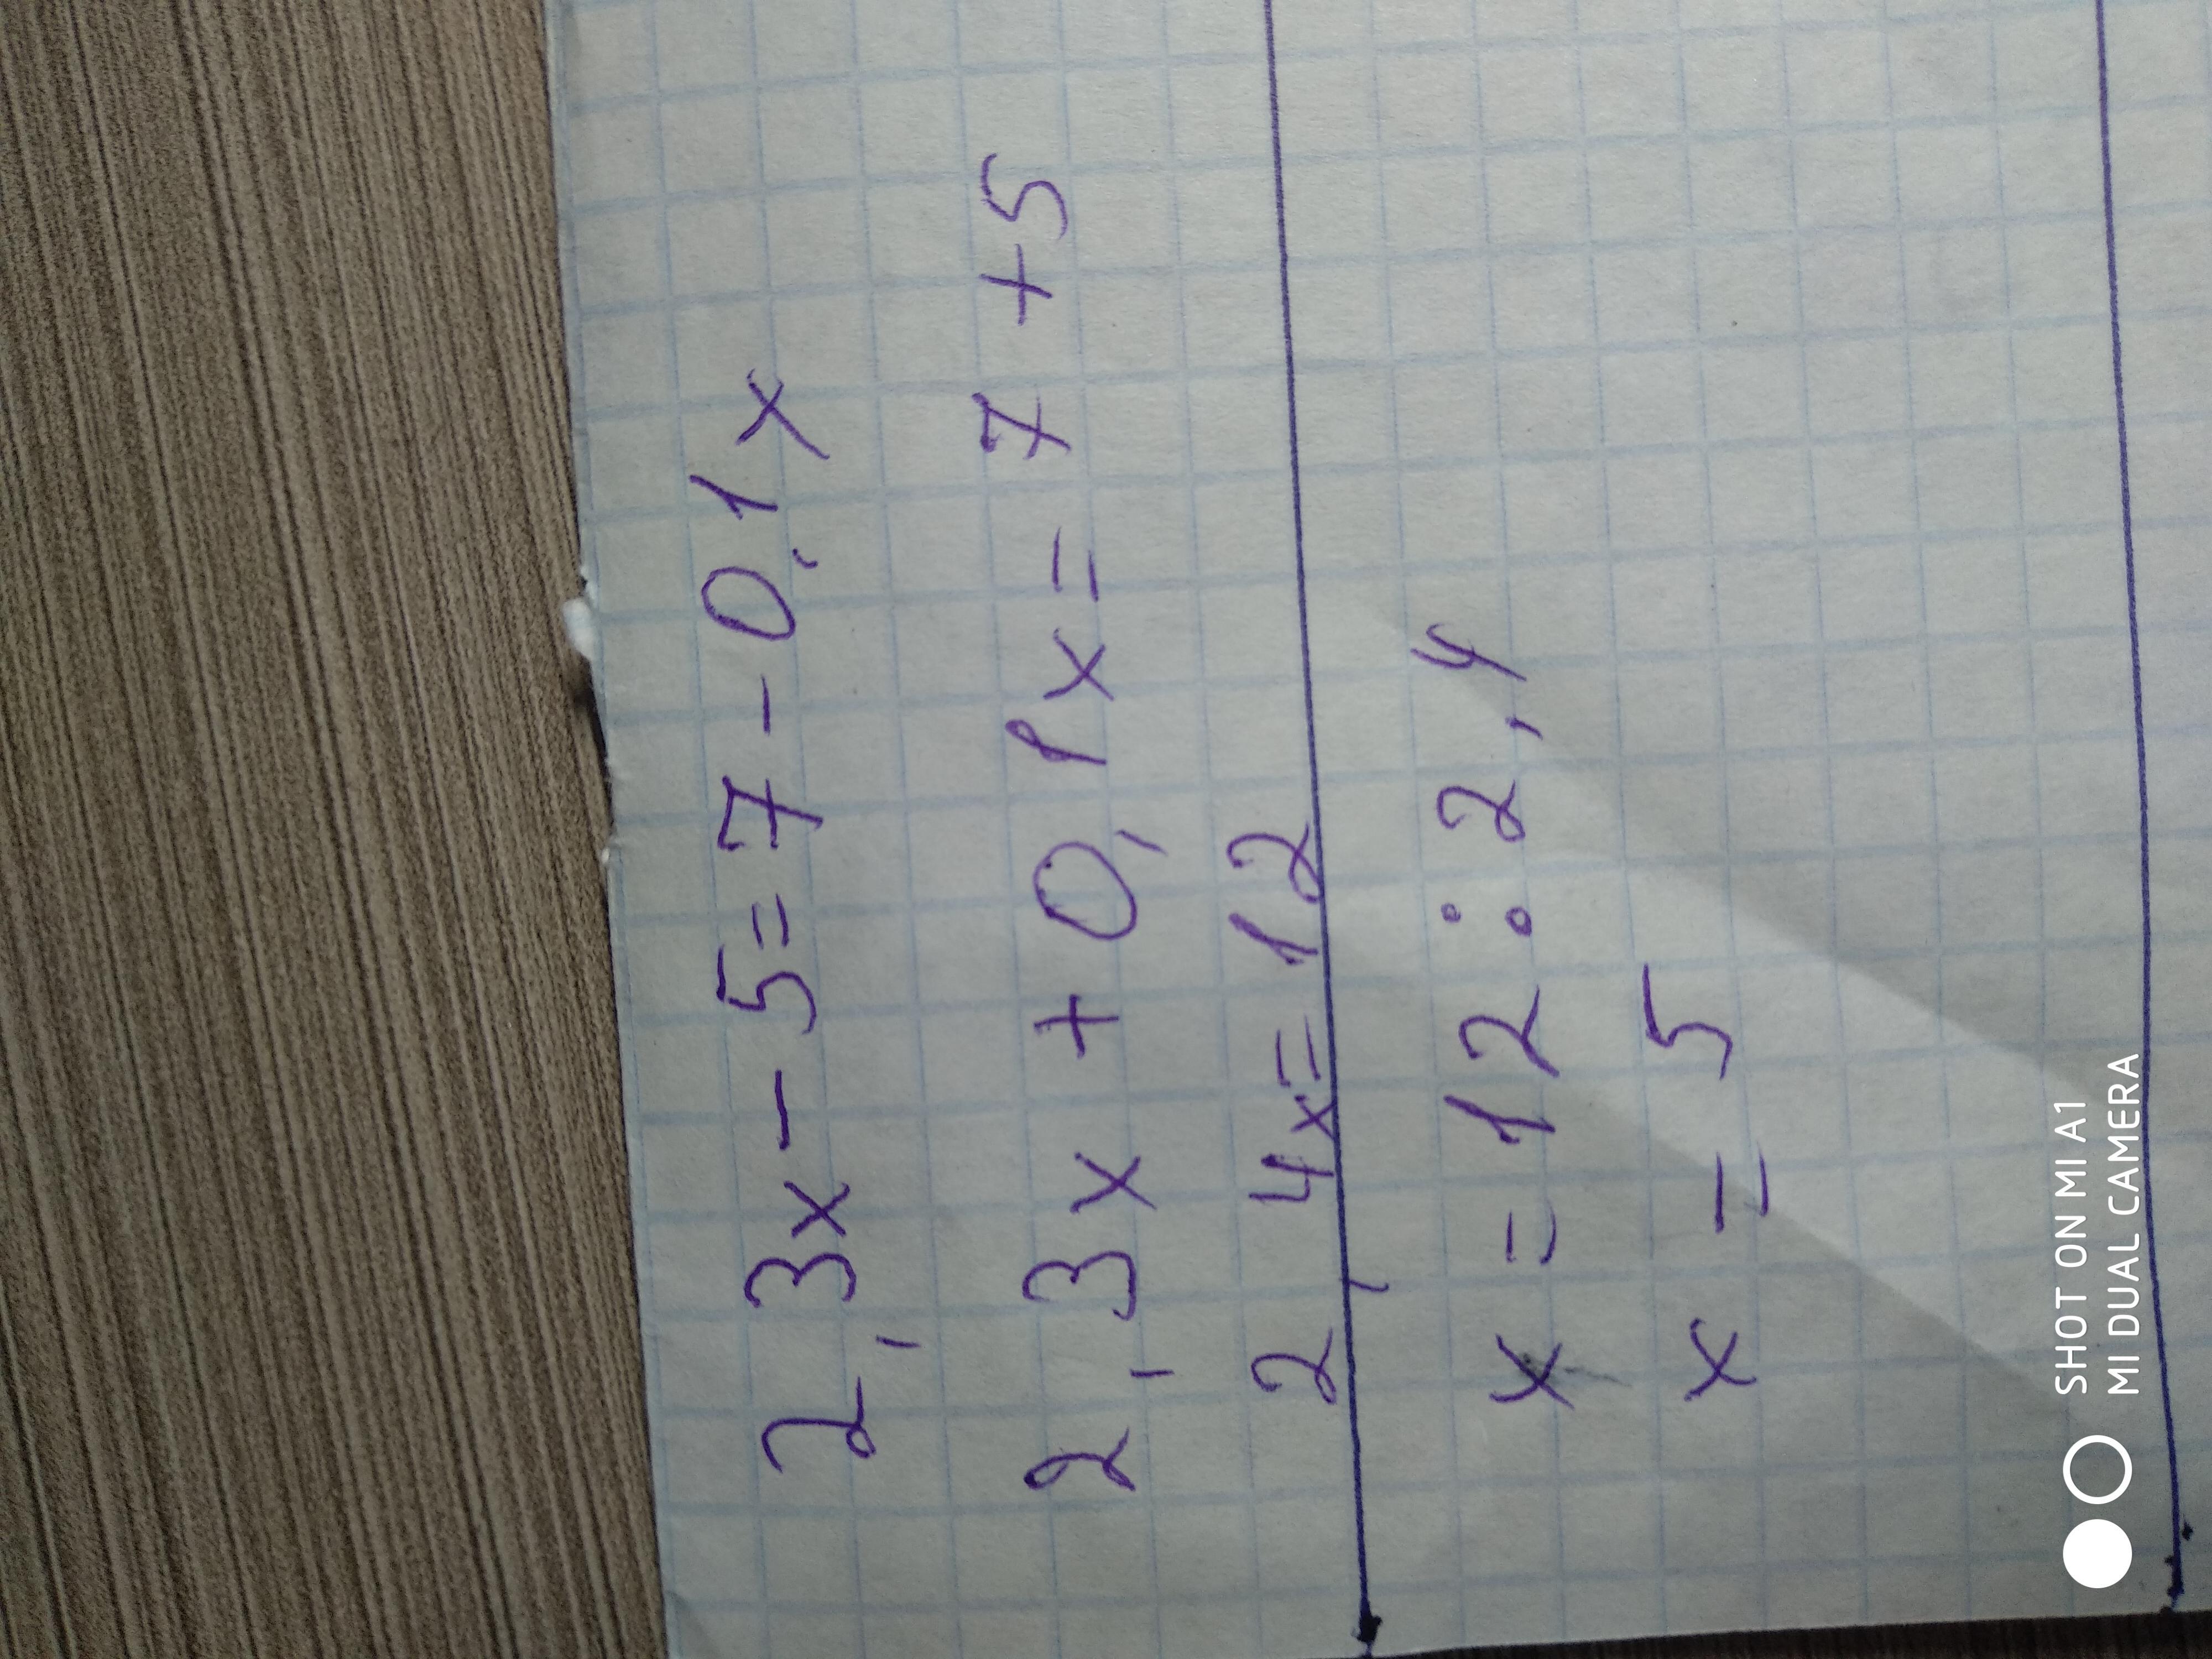 2,3x-5=7-0,1x
2,3x+0,1x=7+5
2,4x=12
x=12:2,4
x=5
SHOT ON MI A1
MI DUAL CAMERA